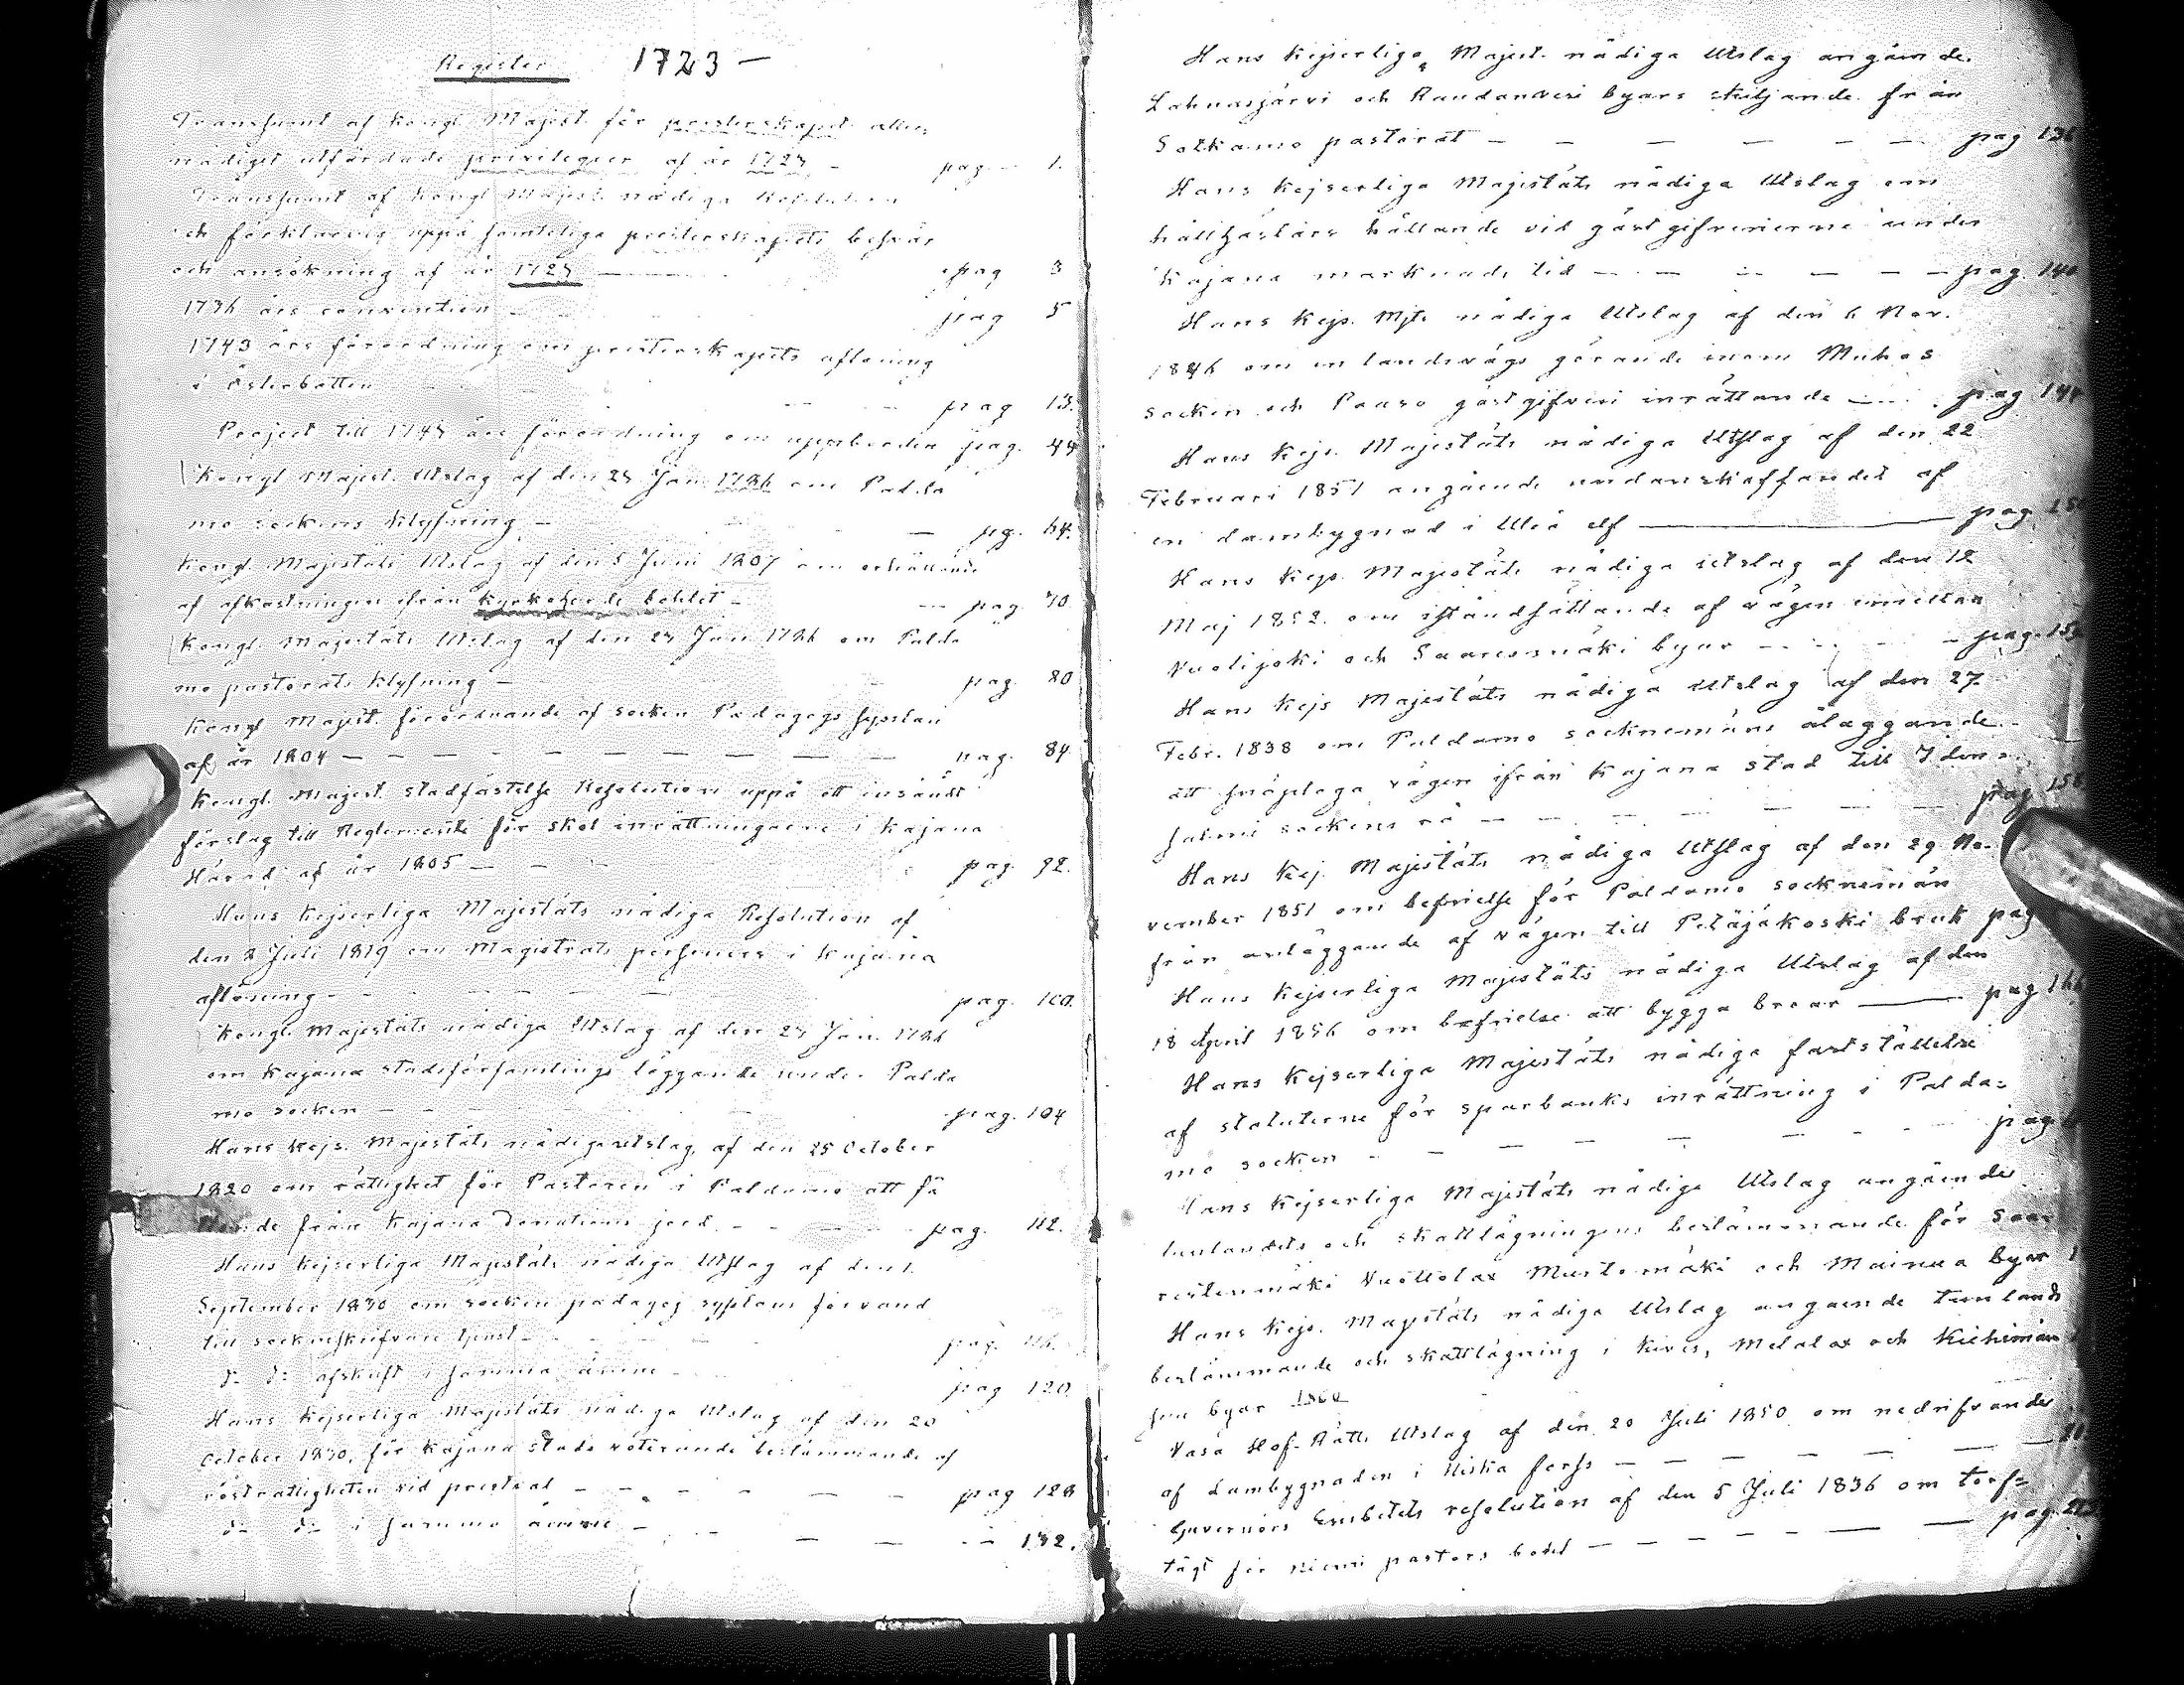 Register 1723 —
Transsumt af Kongl. Majest. för presterskapet aller-
nådigst utfärdade privilegier af år 1723 — pag. — 1.
Transsumt af Kongl. Majest. nådiga Resolution
och förklaring uppå samteliga presterskapets besvär
och ansökning af år 1723 — pag 3
1736 års convention pag 5
1743 års förordning om presterskapets aflöning
i Österbotten
pag 13.
Project till 174 års förordning om uppbörden pag. 44
Kongl. Majest. Utslag af den 23 Jan. 1786 om Palda
mo sockens klyfning — pag. 64.
Kongl. Majestäts Utslag af den 5 Juni 1807 om
af afkastningen ifrån bohlet — pag. 70
Kongl. Majestäts Utslag af den 23 Jan 1786 om Palda
mo pastorats klyfning — pag. 80
Kongl Majest. förordnande af socken Pædagogs sysslan
af år 1804 — — — — — — — — pag. 84.
Kongl. Majest. stadfästelse Resolution uppå ett insändt
förslag till Reglemente för skol inrättningarne i Kajana
Härad af år 1805 — — pag. 92.
Hans Kejserliga Majestäts nådiga Resolution af
den 2 Juli 1819 om Magistrats personers i Kajana
aflöning — pag. 100.
Kongl. Majestäts nådiga Utslag af den 23 Jan. 1786
om Kajana stadsförsamlings läggande under Palda
mo socken — pag. 104
Hans Kejs. Majestäts nådiga utslag, af den 25 October
1820 om rättighet för Pastoren i Paldamo att få
från Kajana Donations jord. — pag. 112.
Hans Kejserliga Majestäts nådiga Utslag af den 1.
September 1830 om socken pædagog sysslans förvand
till sockneskrifvare tjenst — pag. 116.
d:o d:o afskrift i samma ämne pag 120.
Hans Kejserliga Majestäts nådiga Utslag af den 20
October 1830, för Kajana stads voterande bestämmande af
rösträttigheten vid prestval — — — — — pag 128
d:o d:o i samma ämne — — — 132.
Hans Kejserliga Majest. nådiga Utslag angåen de.
Lahnasjärvi och Raudanvesi byars skiljande från
Sotkamo pastorat — — — — — — pag 136
Hans Kejserliga Majestäts nådiga Utslag om
hållhästars hållande vid gästgifverierne under
Kajana marknads tid — — — — — pag. 140
Hans Kejs. Mjts nådiga Utslag af den 6 Nov.
1846 om en landsvägs görande inom Muhos
socken och Paaso gästgifveri inrättande — pag 144
Hans Kejs. Majestäts nådiga Utslag af den 22
Februari 1851 angående undanskaffandet af
en dambygnad i Uleå elf — pag. 150
Hans Kejs. Majestäts nådiga utslag af den 12
Maj 1852. om iståndsättande af vägen emellan
Vuolijoki och Saaresmäki byar — pag. 15
Hans Kejs Majestäts nådiga Utslag af den 27.
Febr. 1838 om Paldamo socknemäns åläggande
att snöploga vägen ifrån Kajana stad till Iden
salmi sockens rå — — — — pag 158
Hans Kej. Majestäts nådiga Utslag af den 29 No-
vember 1851 om befrielse för Paldamo socknemän
från anläggande af vägen till Petäjäkoski bruk pag
Hans Kejserliga Majestäts nådiga Utslag af den
18 April 1856 om befrielse att bygga broar — pag 166
Hans Kejserliga Majestäts nådiga fastställelse
af statuterne för sparbanks inrättning i Palda=
mo socken — — — — — pag
Hans Kejserliga Majestäts nådiga Utslag angåen de
tunlandets och skattlägningens bestämmande för Saa
restenmäki Vuottolax Mustomäki och Mainua byar
Hans Kejs. Majestäts nådiga Utslag angaende tunlands
bestämmande och skattlägning i Kives, Melalax och Kiehimän
suu byar
Vasa Hof-Rätts Utslag af den 20 Juli 1850 om nedrifvandet
af dambygnaden i Niska forss — — — — —
Guvernörs Embetets resolution af den 5 Juli 1836 om torf=
tägt för Niemi pastors bohl — — — — — pag.